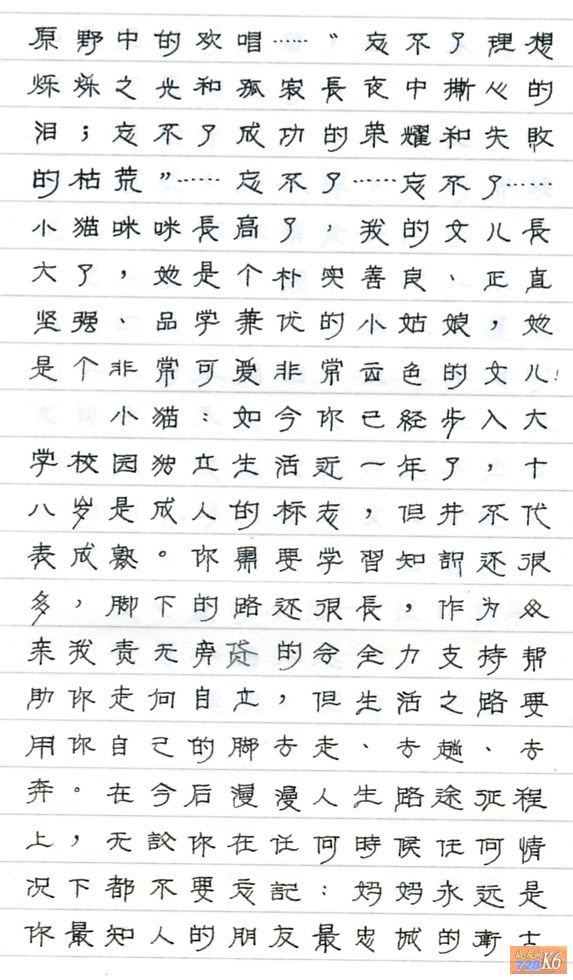 原野中的欢唱……“忘不了理想
烁烁之光和孤寂長夜中撕心的
泪；忘不了成功的荣耀和失敗
的枯荒”……忘不了……忘不了……
小猫咪咪長高了，我的女儿長
大了，她是个朴实善良、正直
坚强、品学兼优的小姑娘，她
是个非常可爱非常出色的女儿！
小猫：如今你已経步入大
学校园独立生活近一年了，十
八岁是成人的标志，但并不代
表成熟。你需要学習知識还很
多，脚下的路还很長，作为父
亲我责无旁贷的会全力支持帮
助你走向自立，但生活之路要
用你自己的脚去走、去趟、去
奔。在今后漫漫人生路途征程
上，无論你在任何時候任何情
况下都不要忘記：妈妈永远是
你最知人的朋友最忠誠的衛士
728K6